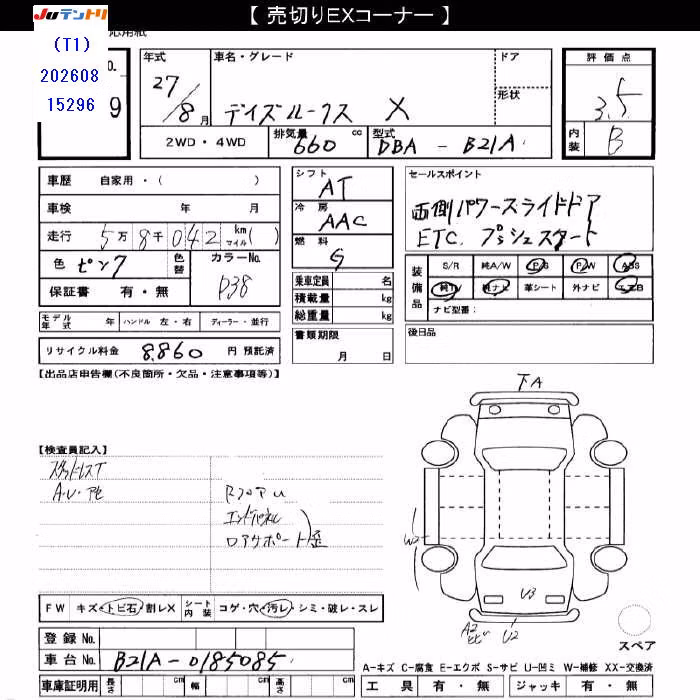 【 売切りEXコーナー 】
JUテントリ
(T1)
202608
15296
No.
9
年式
27/8月
車名・グレード
デイズルークス X
ドア
形状
評価点
3.5
内装
B
2WD・4WD
排気量 660 cc
型式 DBA - B21A
車歴 自家用・( )
車検 年 月
走行 5万8千042 km マイル( )
色 ピンク 色替
カラーNo. P38
保証書 有・無
シフト AT
冷房 AAC
燃料 G
乗車定員 名
積載量 kg
総重量 kg
書類期限
月 日
セールスポイント
両側パワースライドドア
ETC. プッシュスタート
装備品
S/R 純A/W P/S P/W ABS
純TV 純ナビ 革シート 外ナビ エアB
ナビ型番:
後日品
モデル年式 年 ハンドル 左・右 ディーラー・並行
リサイクル料金 8,860 円 預託済
【出品店申告欄(不良箇所・欠品・注意事項等)】
下A
【検査員記入】
スタッドレスT
A・U・アセ
RフロアU
エンドパネル
ロアサポート歪
W2
U3
A2
U2
FW キズ・トビ石・割レX シート内装 コゲ・穴・汚レ・シミ・破レ・スレ
スペア
登録No.
車台No. B21A-0185085
A-キズ C-腐食 E-エクボ S-サビ U-凹ミ W-補修 XX-交換済
車庫証明用 長さ cm 幅 cm 高さ cm
工具 有・無 ジャッキ 有・無